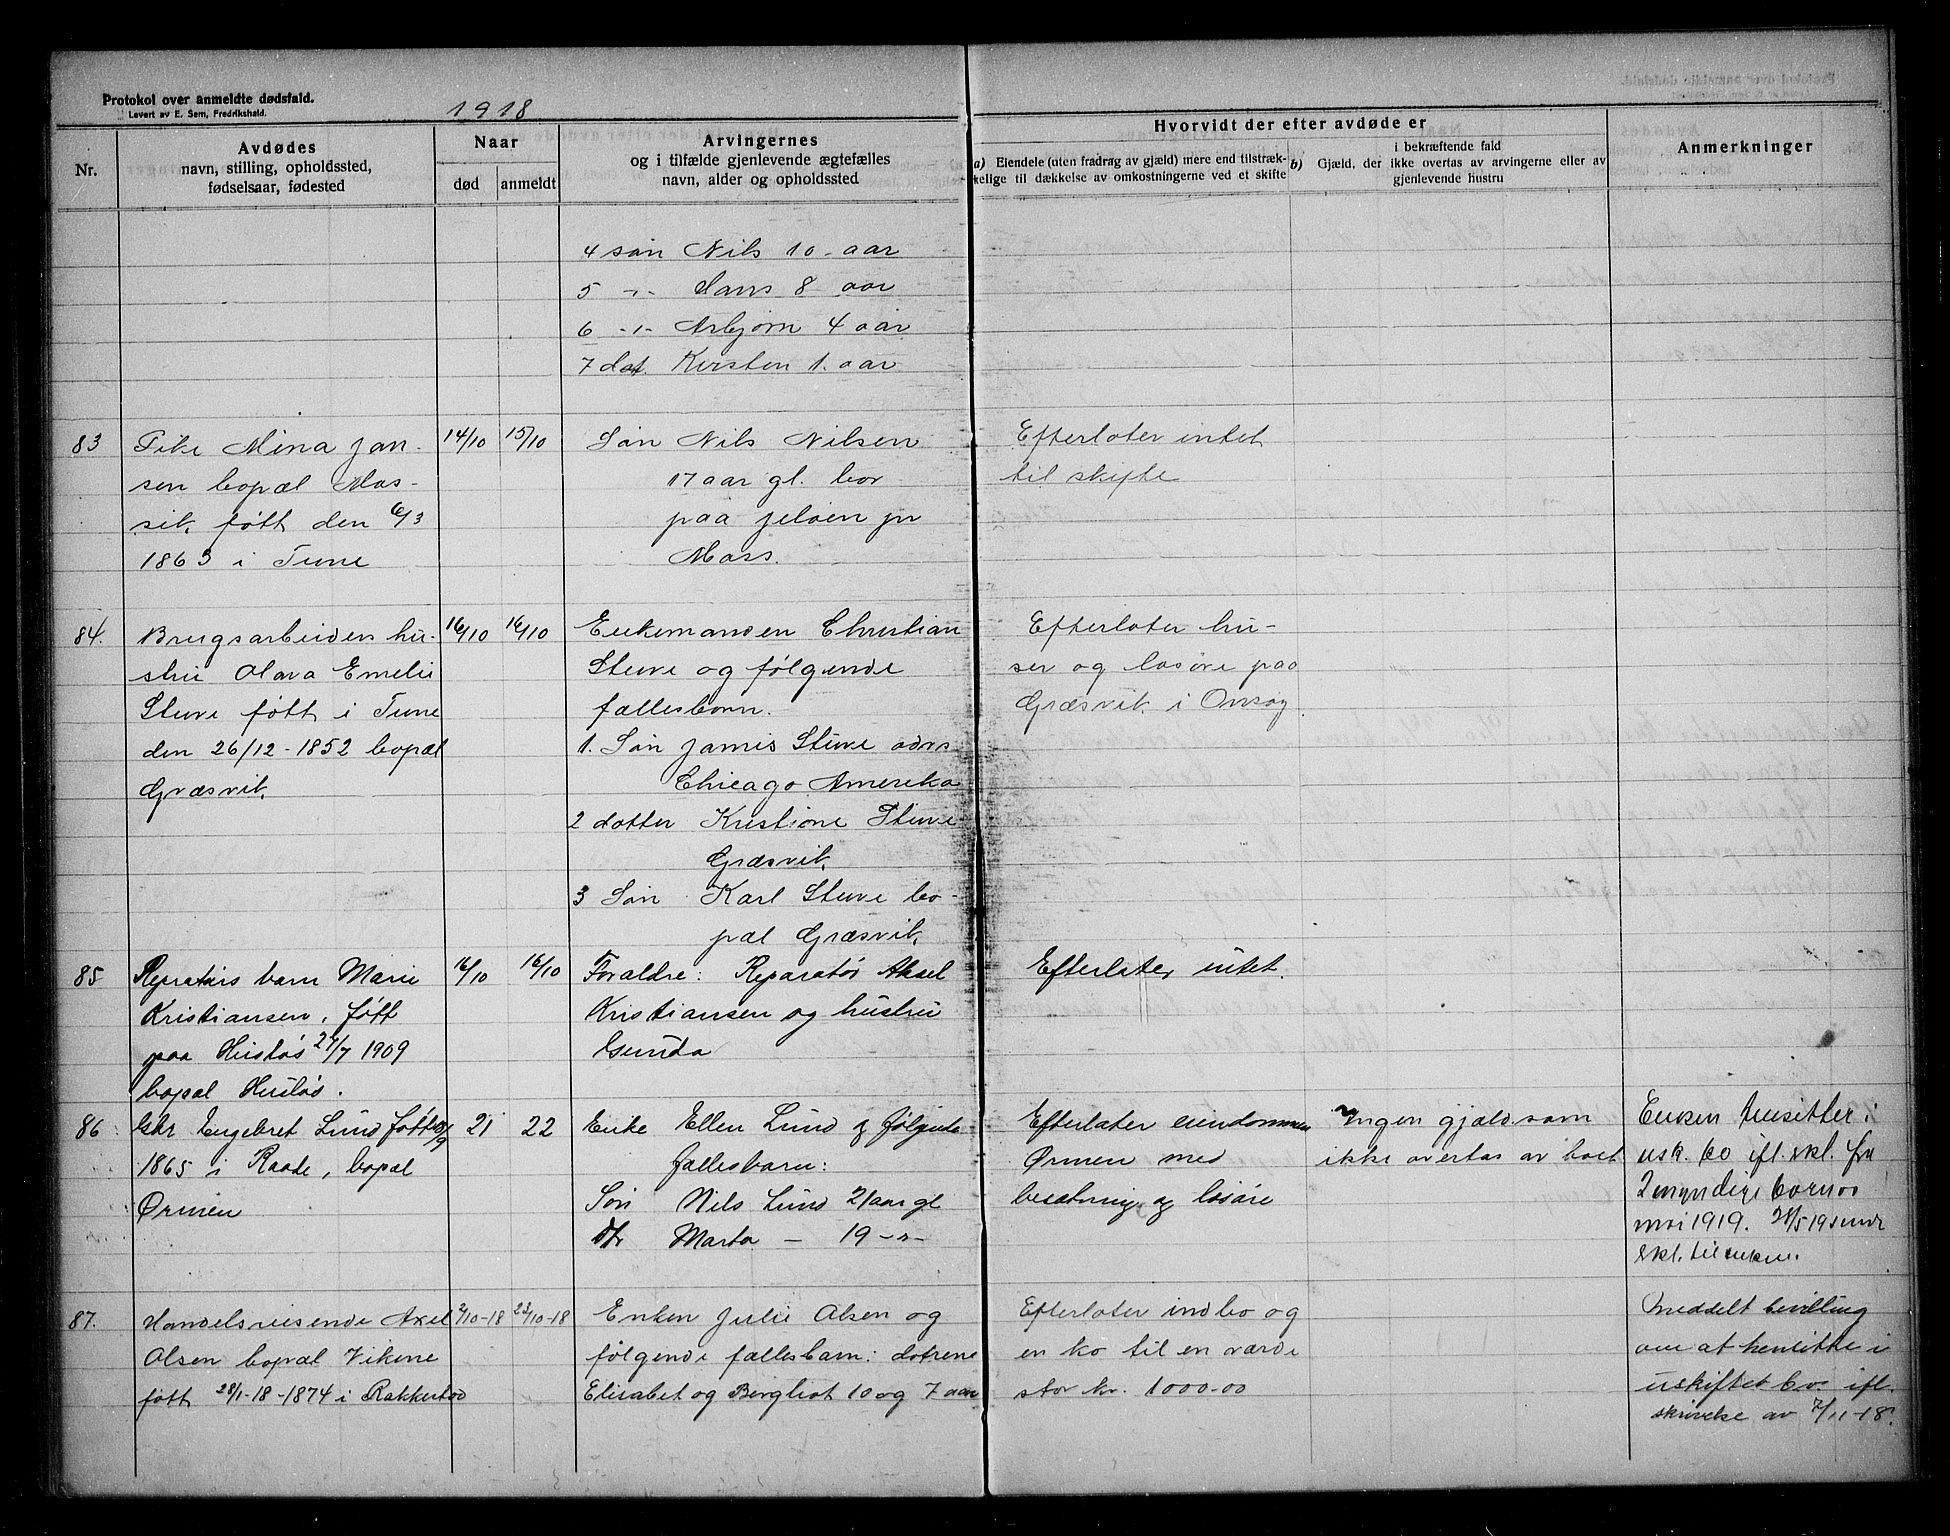 Protokol over anmeldte dødsfald.
Levert av E. Sem, Fredrikshald.
1918.
Nr.
Avdødes
navn, stilling, opholdssted,
fødselsaar, fødested
Naar
død
anmeldt
Arvingernes
og i tilfælde gjenlevende ægtefælles
navn, alder og opholdssted
Hvorvidt der efter avdøde er
a) Eiendele (uten fradrag av gjæld) mere end tilstræk-
kelige til dækkelse av omkostningerne ved et skifte
b) Gjæld, der
i bekræftende fald
ikke overtas av arvingerne eller av
gjenlevende hustru
Anmerkninger
4 søn Nils 10 - aar
5 -"- Hans 8 aar
6 -"- Asbjørn 4 aar
7 dat. Kirsten 1. aar
83
Pike Mina Jan-
sen bopæl Mos-
sik, født den 6/3
1863 i Tune
14/10
15/10
Søn Nils Nilsen
17 aar gl. bor
paa Jeløen pr
Moss.
Efterlater intet
til skifte
84.
Brugsarbeiders hu-
stru Olava Emelie
Stuve født i Tune
den 26/12 - 1852 bopæl
Græsvik
16/10
16/10
Enkemanden Christian
Stuve og følgende
fællesbørn.
1. Søn James Stuve adrs
Chicago Amerika
2 datter Kristiane Stuve
Græsvik,
3 Søn Karl Stuve bo-
pæl Græsvik,
Efterlater hu-
ser og løsøre paa
Græsvik i Onsøy
85
Repratørs barn Marie
Kristiansen, født
paa Husløs 1909
bopæl Husløs.
16/10
16/10
Foraldre: Reparatør Aksel
Kristiansen og hustru
Gunda
Efterlater intet.
86
Gbr Engebret Lund født
1865 i Raade, bopæl
Ørmen
21
22
Enke Ellen Lund og følgende
fællesbarn:
Søn Nils Lund 21 aar gl
dtr Marta - 19 -"-
Efterlater eiendommen
Ørmen med
besætning og løsøre
Ingen gjæld som
ikke overtas av boet
Enken hensitter i
usk. bo ifl. skl. fra
2 myndige børn
mai 1919.
skl. til enken.
87.
Handelsreisende Axel
Olsen bopæl Vikene
født 28/1-18-1874 i Rakkestad
2/10-18
23/10-18
Enken Julie Olsen og
følgende fællesbarn: døtrene
Elisabet og Bergliot 10 og 7 aar
Efterlater indbo og
en ko til en værdi
stor kr. 1000-00
Meddelt bevilling
om at hensitte i
uskiftet bo ifl.
skrivelse av 7/11-18.